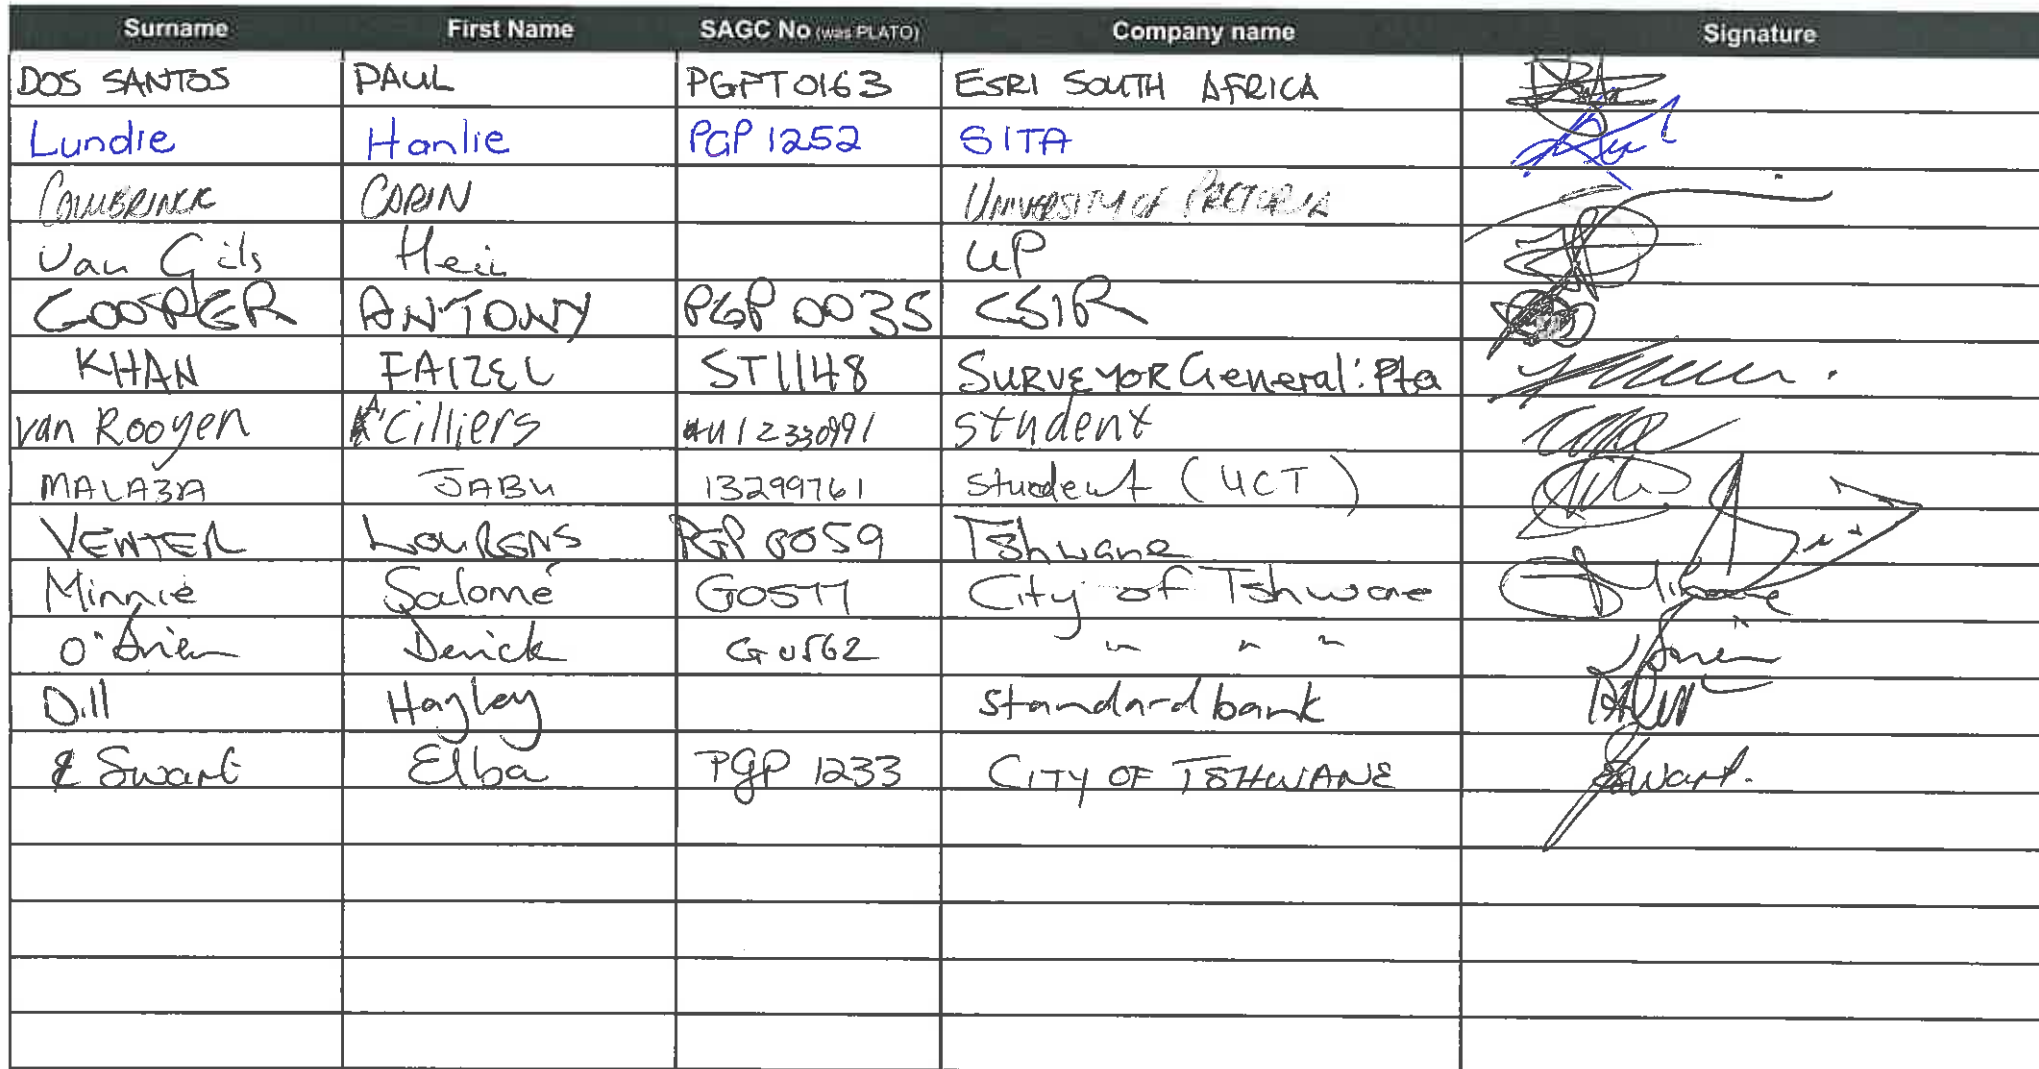 Surname First Name SAGC No (was PLATO) Company name Signature
DOS SANTOS PAUL PGPT0163 ESRI SOUTH AFRICA
Lundie Hanlie PGP 1252 SITA
COMBRINCK CORIN UNIVERSITY OF PRETORIA
Van Gils Hein UP
COOPER ANTONY PGP 0035 CSIR
KHAN FAIZEL ST1148 SURVEYOR General: Pta
van Rooyen Cilliers #u12330991 student
MALAZA JABU 13299761 student (UCT)
VENTER LOURENS PGP 0059 Tshwane
Minnie Salomé G0577 City of Tshwane
O'Brien Derick G0562 " " "
Dill Hayley standard bank
Swart Elba PGP 1233 CITY OF TSHWANE Swart.